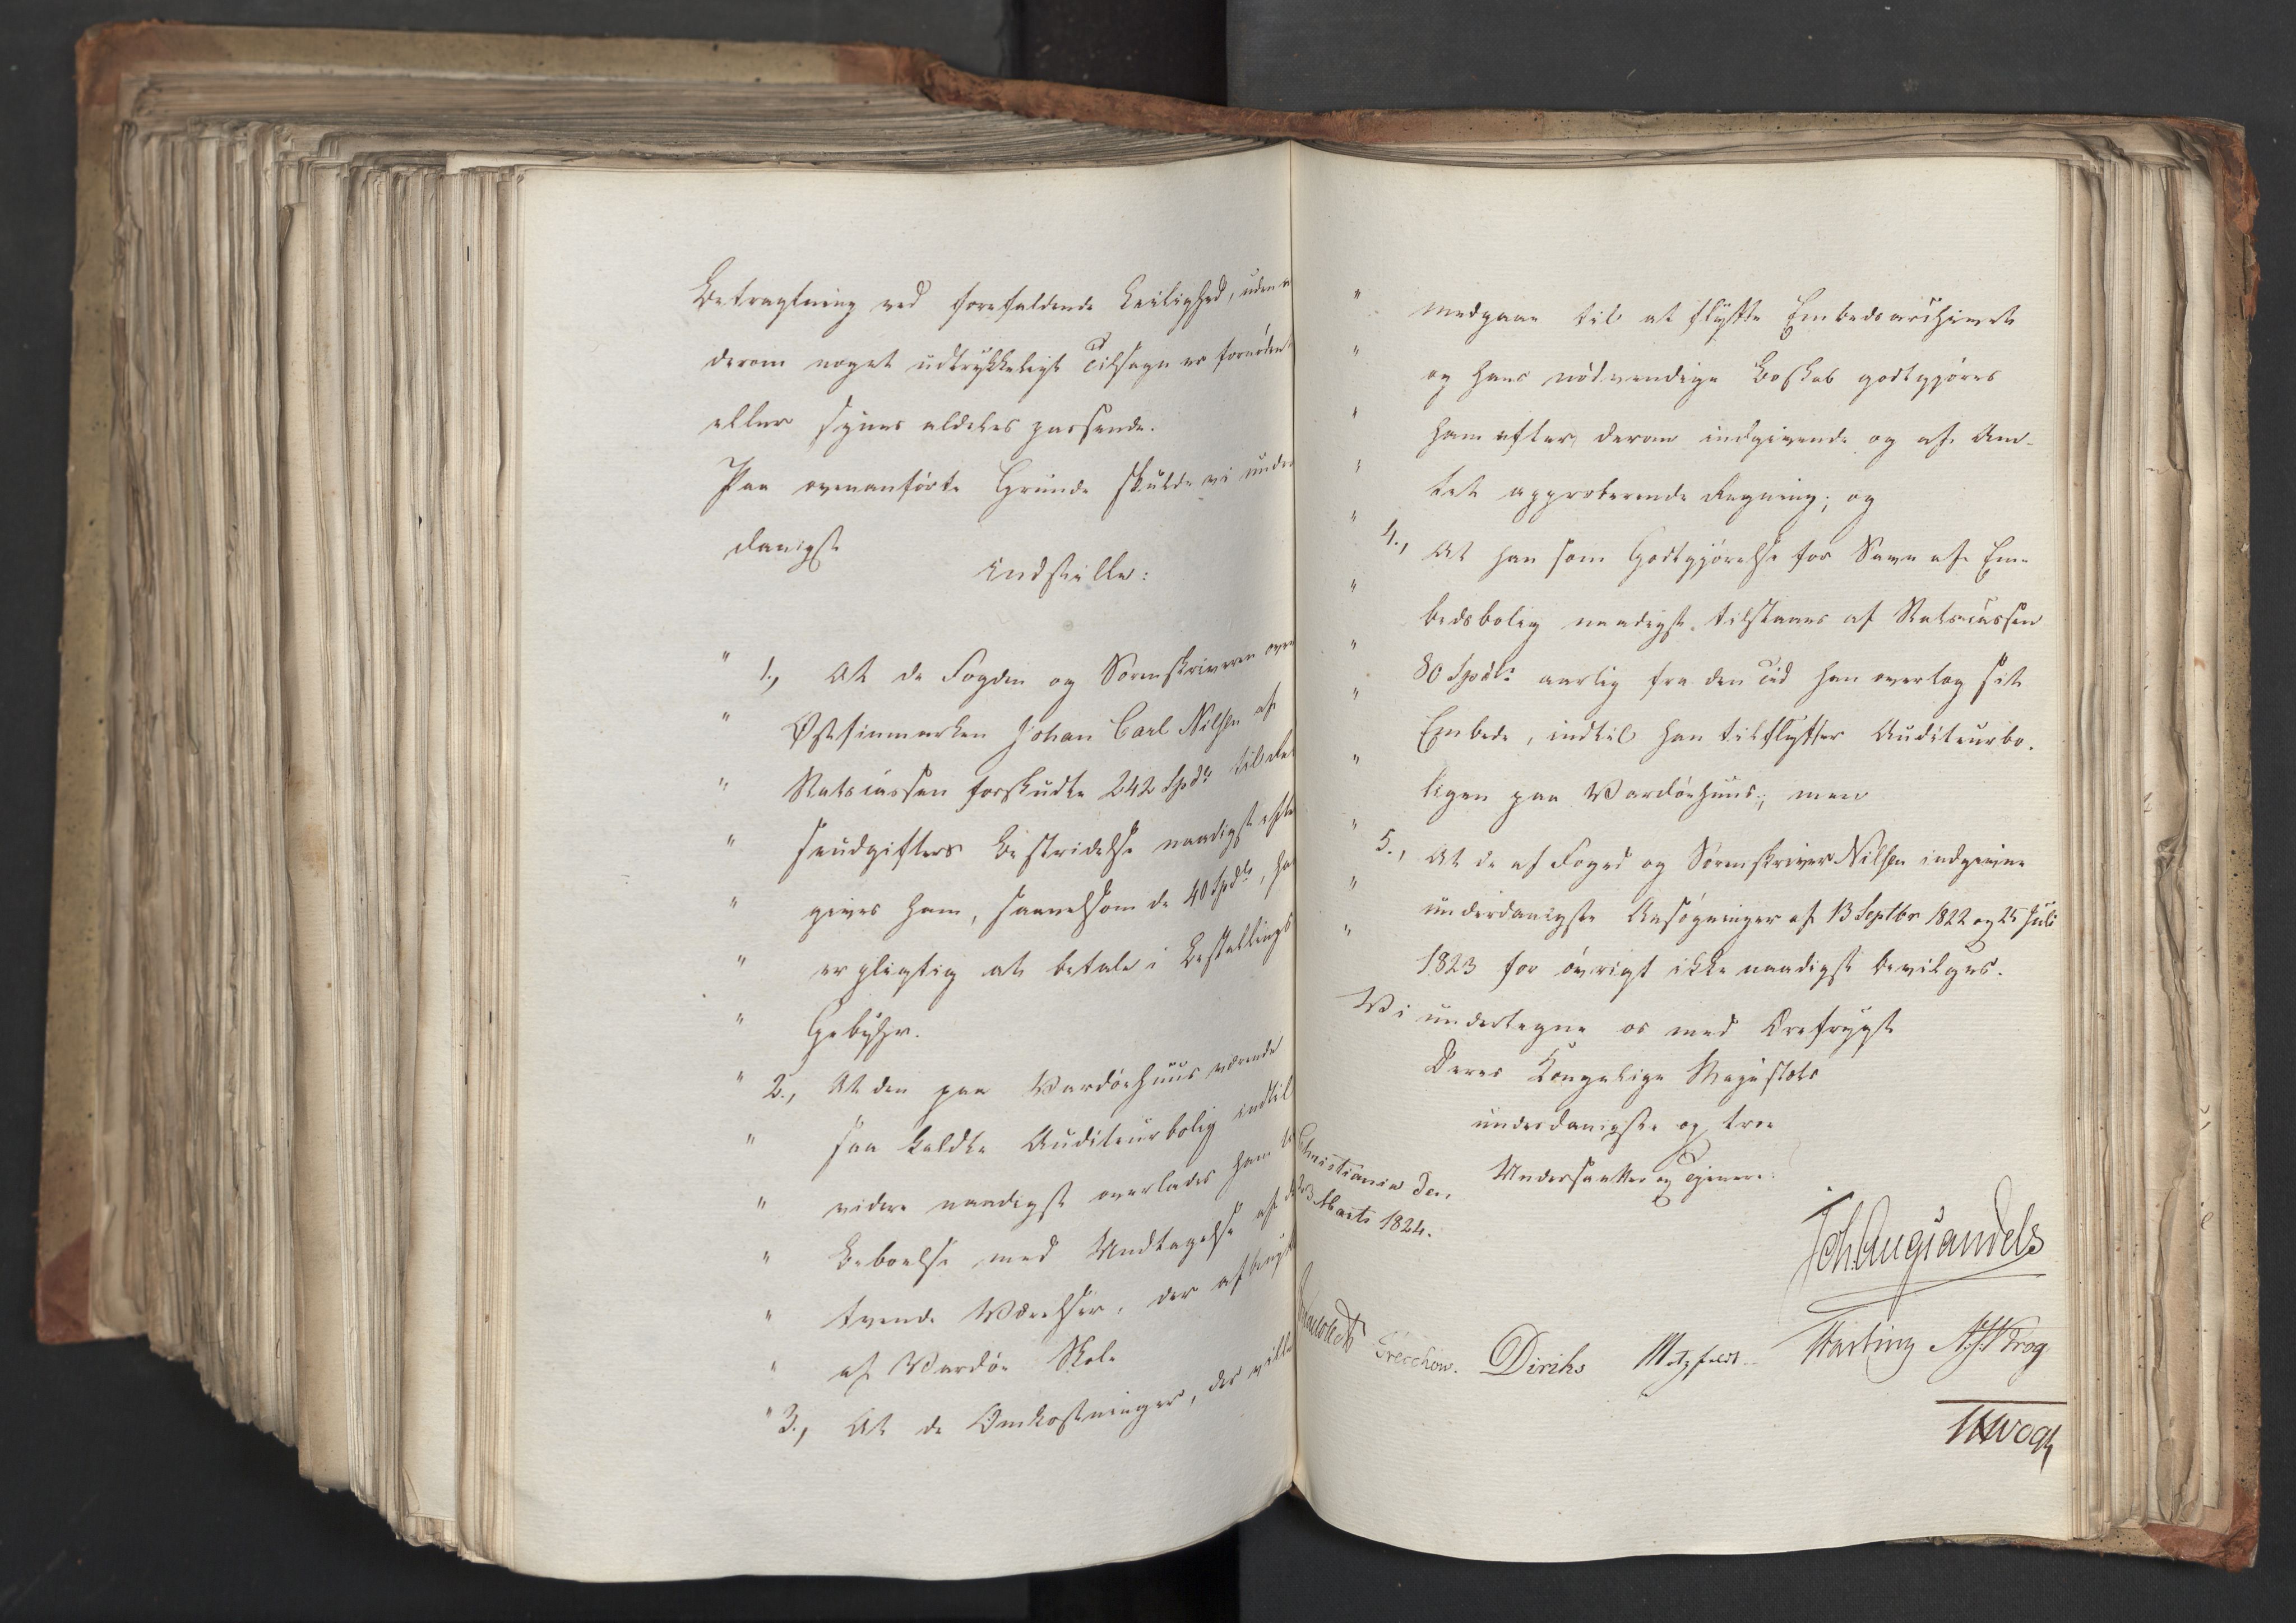 Betragtning ved forefaldende Leilighed, uden at
derom noget udtrykkeligt Tilsagn er fornödent
eller synes aldeles passende.
Paa ovenanförte Grunde skulde vi under-
danigst
indstille:
" 1., At de Fogden og Sorenskriveren over
" Østfinmarken Johan Carl Nilsen af
" Statscassen forskudte 242 Spdlr til
" seudgifters Bestridelse naadigst efter
" gives ham, saavelsom de 40 Spdlr, han
" er pligtig at betale i Bestallings
" Gebyhr.
" 2., At den paa Wardöehuus værende
" saa kaldte Auditeurbolig indtil
" videre naadigst overlades ham til
" Beboelse med Undtagelse af de
" tvende Værelser, der afbenyttes
" af Wardöe Skole
" 3., At de Omkostninger, der ville
" medgaae til at flytte Embedsarchivet
" og hans nödvendige Boskab godtgjöres
" ham efter derom indgivende og af Am-
" tet approberende Regning; og
" 4., At han som Godtgjörelse for Savn af Em-
" bedsbolig naadigst tilstaaes af Statscassen
" 80 Spdlr aarlig fra den Tid han overtog sit
" Embede, indtil han tilflytter Auditeurbo-
" ligen paa Wardöehuus; men
" 5., At de af Foged og Sorenskriver Nilsen indgivne
" underdanigste Ansögninger af 13 Septbr 1822 og 25 Juli
" 1823 for övrigt ikke naadigst bevilges.
Wi undertegne os med Ærefrygt
Deres Kongelige Majestæts
underdanigste og troe
Undersaatter og Tjenere.
Christiania den
23 Marts 1824.
Joh. Aug Sandels
Treschow. Diriks Motzfeldt Fasting A. J. Krog
Vogt